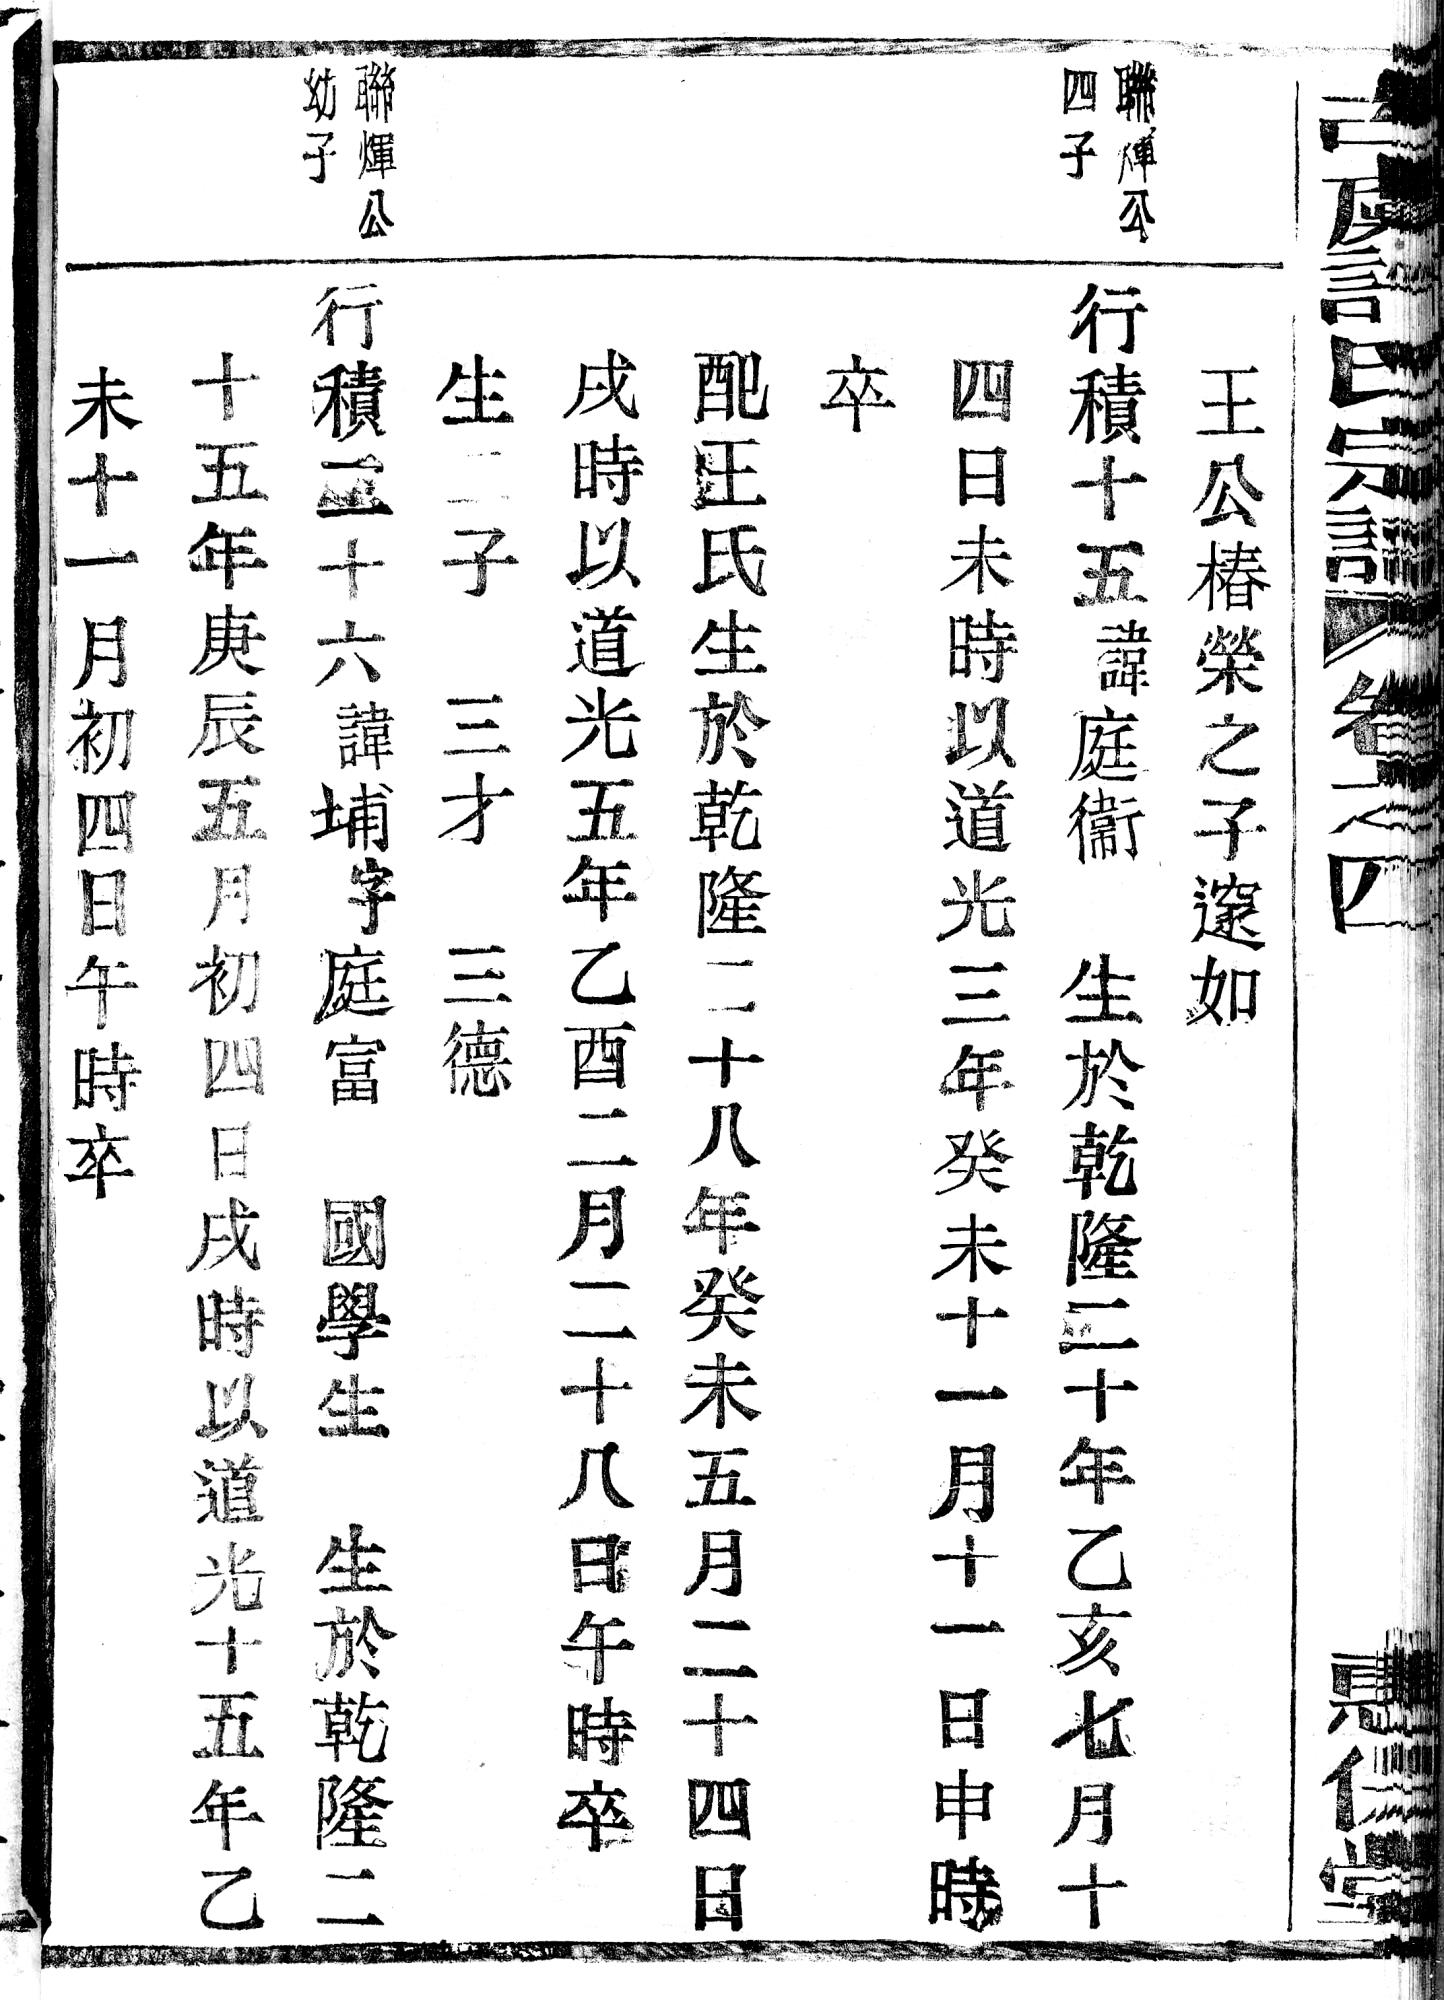 氏宗譜
卷之四
仁堂
王公椿榮之子邃如
聯煇公
四子
行積十五諱庭衞 生於乾隆二十年乙亥七月十
四日未時以道光三年癸未十一月十一日申時
卒
配王氏生於乾隆二十八年癸未五月二十四日
戌時以道光五年乙酉二月二十八日午時卒
生二子 三才 三德
聯煇公
幼子
行積二十六諱埔字庭富 國學生 生於乾隆二
十五年庚辰五月初四日戌時以道光十五年乙
未十一月初四日午時卒